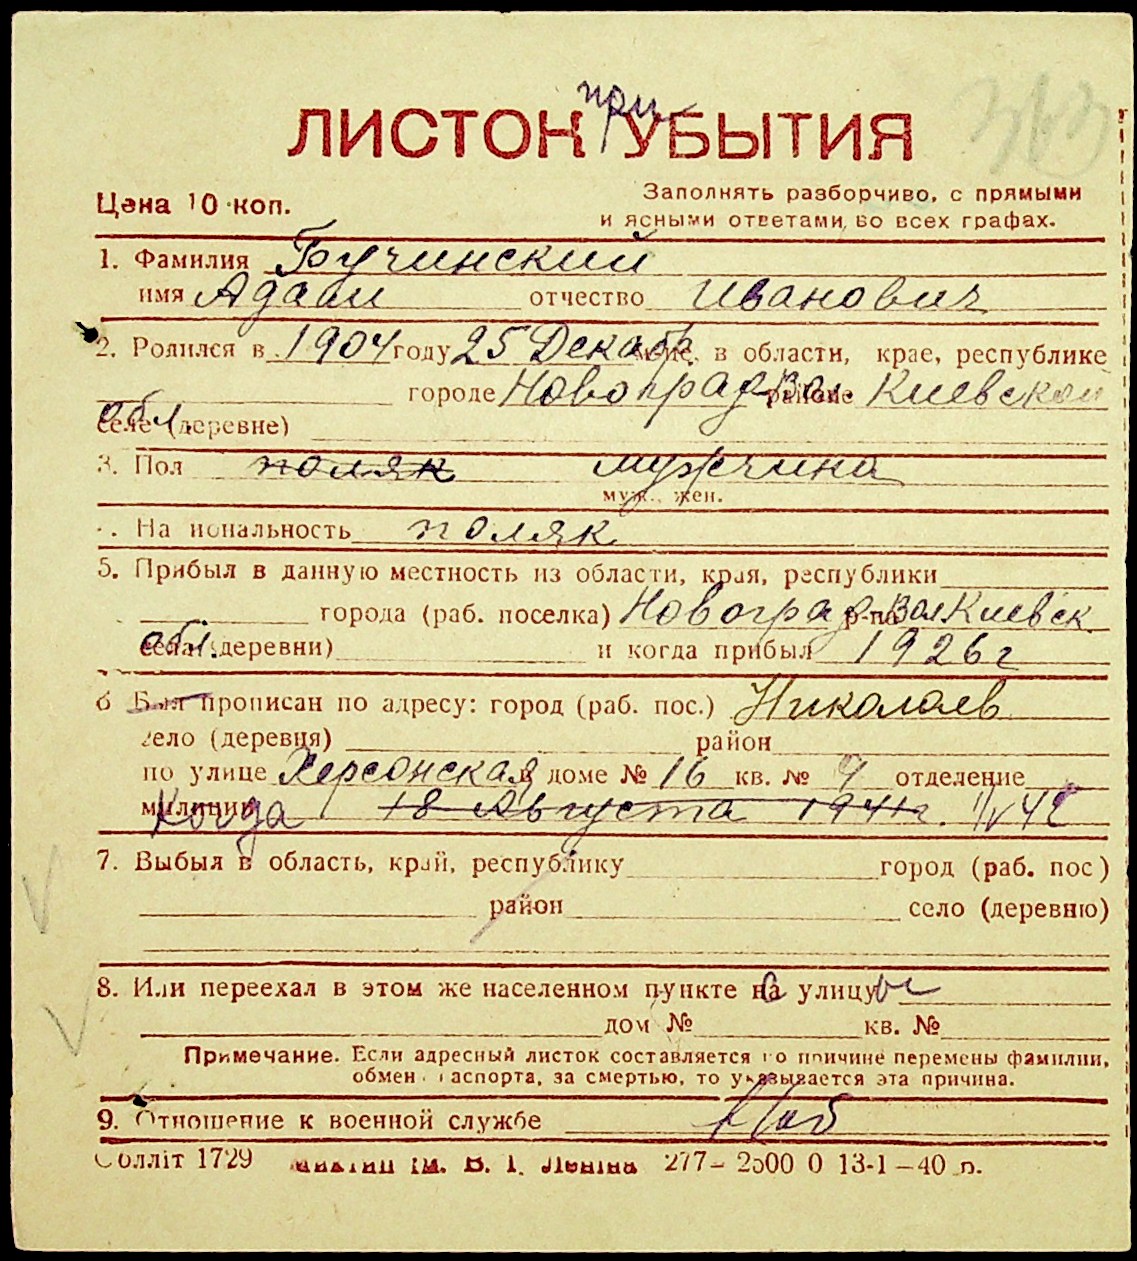 при
ЛИСТОК УБЫТИЯ
Цена 10 коп.
Заполнять разборчиво, с прямыми
и ясными ответами во всех графах.
1. Фамилия Бучинский
имя Адам отчество Иванович
2. Родился в 1904 году 25 Декабр. мес. в области, крае, республике
городе Новоград Вол. районе Киевской
обл. селе (деревне)
3. Пол поляк мужчина
муж., жен.
4. Национальность поляк
5. Прибыл в данную местность из области, края, республики
города (раб. поселка) Новоград-Вол р-на Киевск.
обл. села (деревни) и когда прибыл 1926 г
6 Был прописан по адресу: город (раб. пос.) Николаев
село (деревня) район
по улице Херсонская в доме № 16 кв. № 9 отделение
милиции Когда 18 Августа 1941г.
7. Выбыл в область, край, республику город (раб. пос)
район село (деревню)
8. Или переехал в этом же населенном пункте на улицу
дом № кв. №
Примечание. Если адресный листок составляется по причине перемены фамилии,
обмен паспорта, за смертью, то указывается эта причина.
9. Отношение к военной службе
Облліт 1729 ім. В. І. Леніна 277— 2500 0 13-1—40 р.